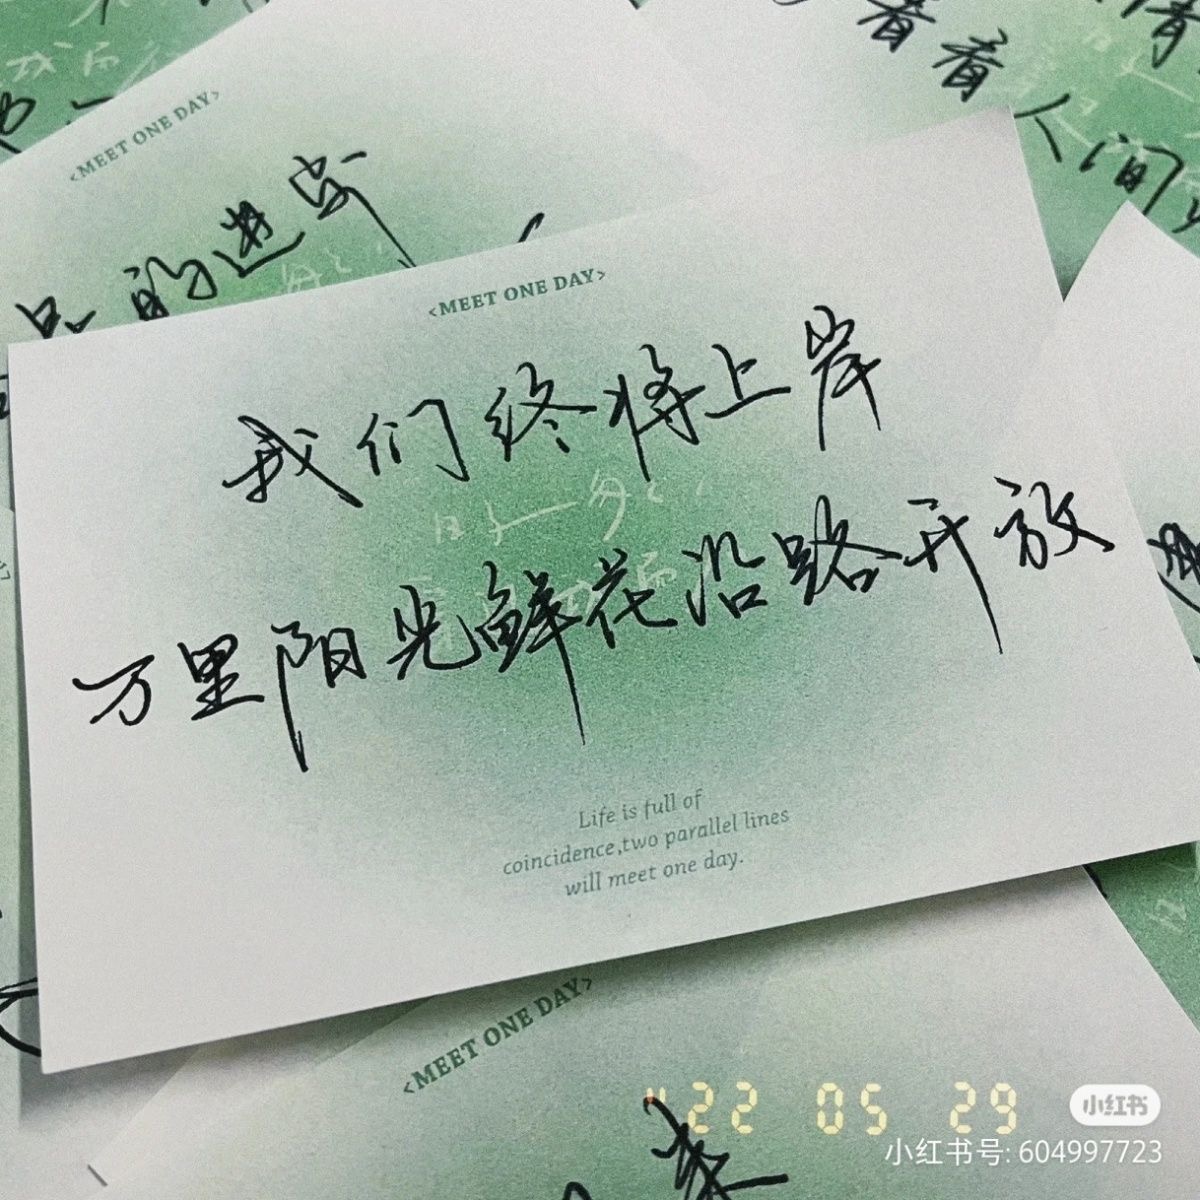 <MEET ONE DAY>
的进步
看看人间
<MEET ONE DAY>
我们终将上岸
万里阳光鲜花沿路开放
Life is full of
coincidence,two parallel lines
will meet one day.
<MEET ONE DAY>
'22 05 29
小红书
小红书号: 604997723